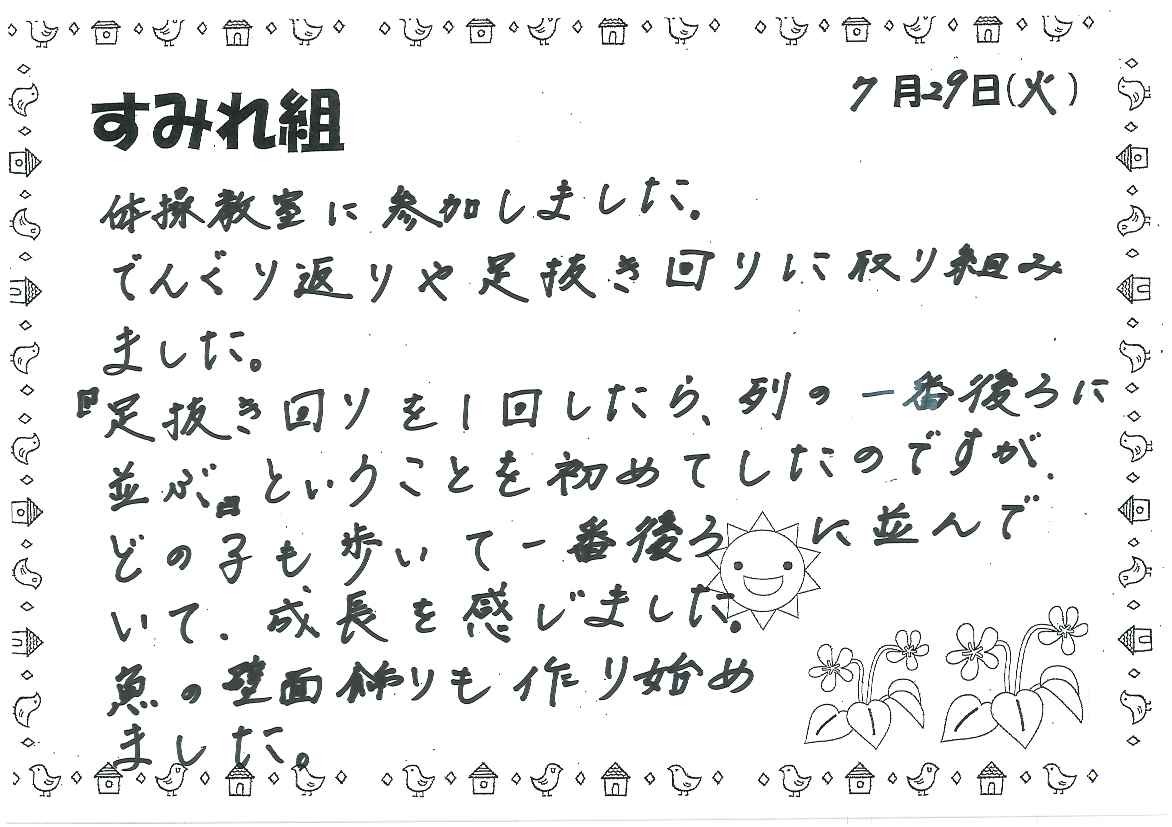 7月29日(火)
すみれ組
体操教室に参加しました。
でんぐり返りや足抜き回りに取り組み
ました。
『足抜き回りを1回したら、列の一番後ろに
並ぶ』ということを初めてしたのですが、
どの子も歩いて一番後ろに並んで
いて、成長を感じました。
魚の壁面飾りも作り始め
ました。